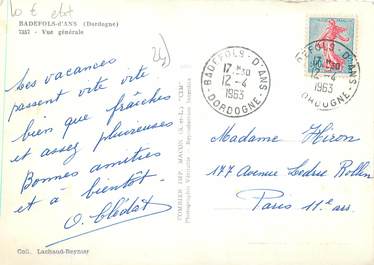 10 € etat
BADEFOLS-d'ANS (Dordogne)
7357 - Vue générale
24)
Les vacances
passent vite vite
bien que fraîches
et assez pluvieuses
Bonnes amitiés
et à bientôt.
COMBIER IMP. MACON (S.-et-L.) "CIM"
Photographie Véritable - Reproduction interdite
BADEFOLS-D'ANS
17H30
12-4
1963
DORDOGNE
BADEFOLS-D'ANS
17H30
12-4
1963
DORDOGNE
Madame Hiron
177 Avenue Ledru Rollin
Paris 11e arr.
Coll. Lachaud-Reymer